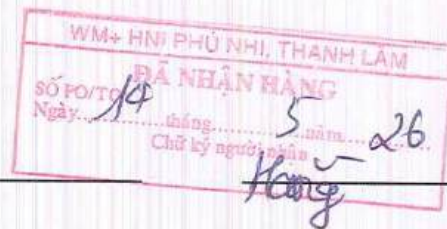 WM+ HNI PHÚ NHI, THANH LÂM
ĐÃ NHẬN HÀNG
SỐ PO/TO
Ngày 14 tháng 5 năm 26
Chữ ký người nhận
Hằng